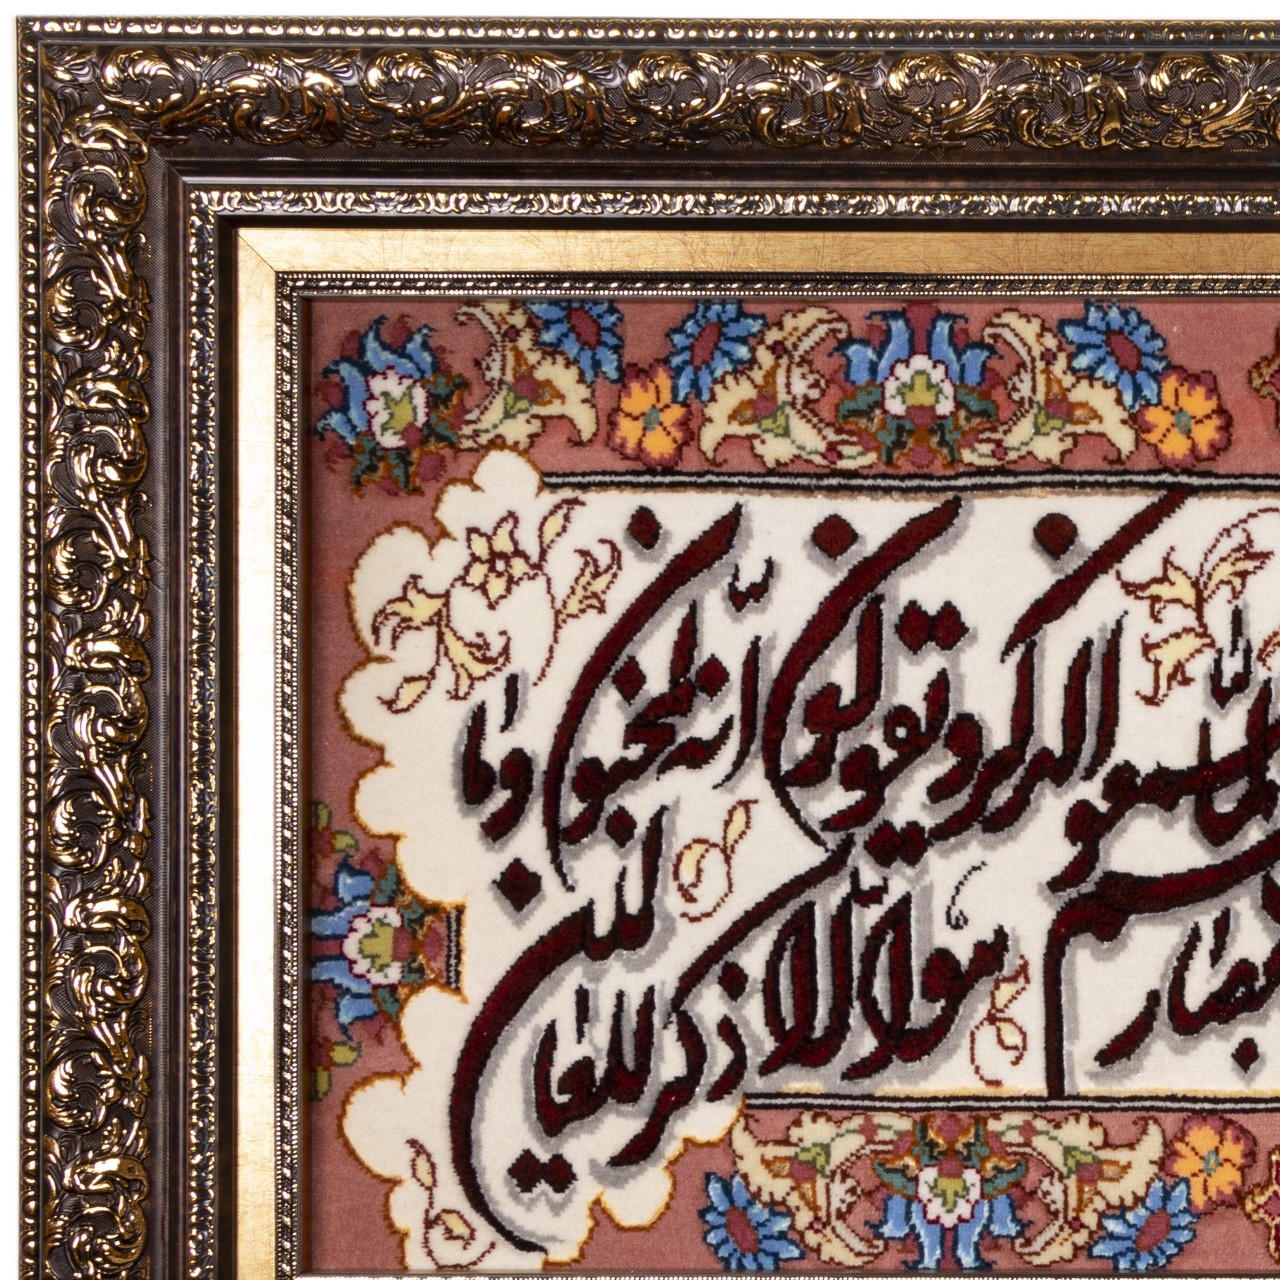 لما سمعوا الذكر ويقولون انه لمجنون وما
بابصارهم
هو الا ذكر للعالمين